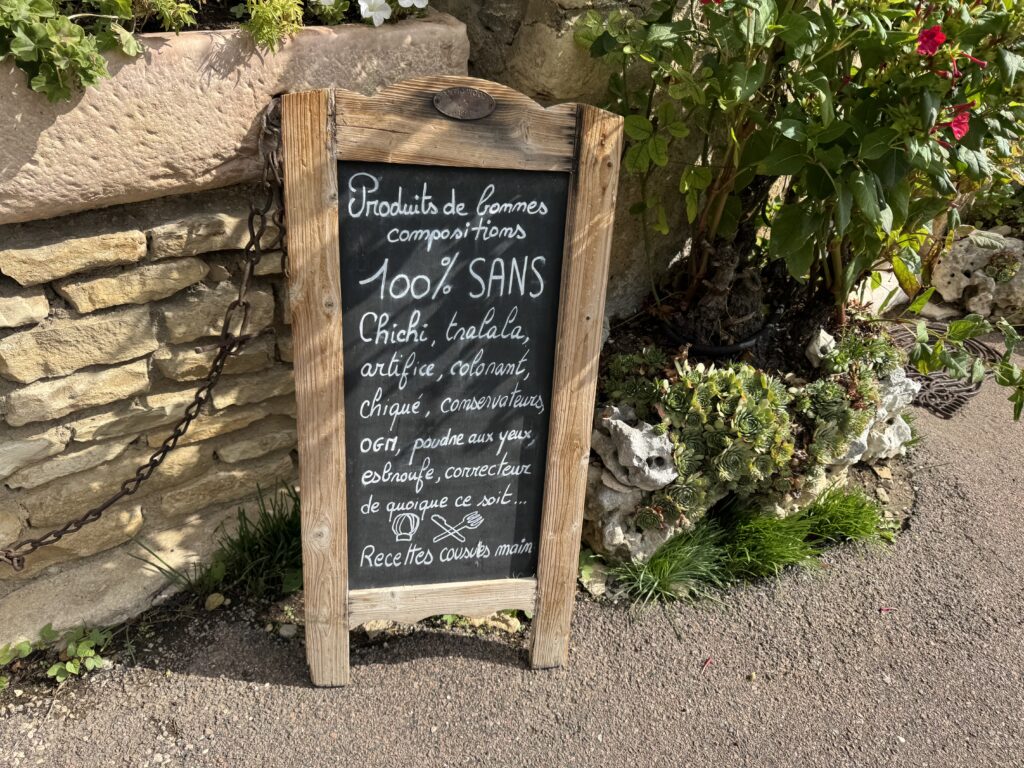 Produits de bonnes
compositions
100% SANS
Chichi, tralala,
artifice, colorant,
chiqué, conservateurs,
OGM, poudre aux yeux,
esbroufe, correcteur
de quoique ce soit...
Recettes cousues main